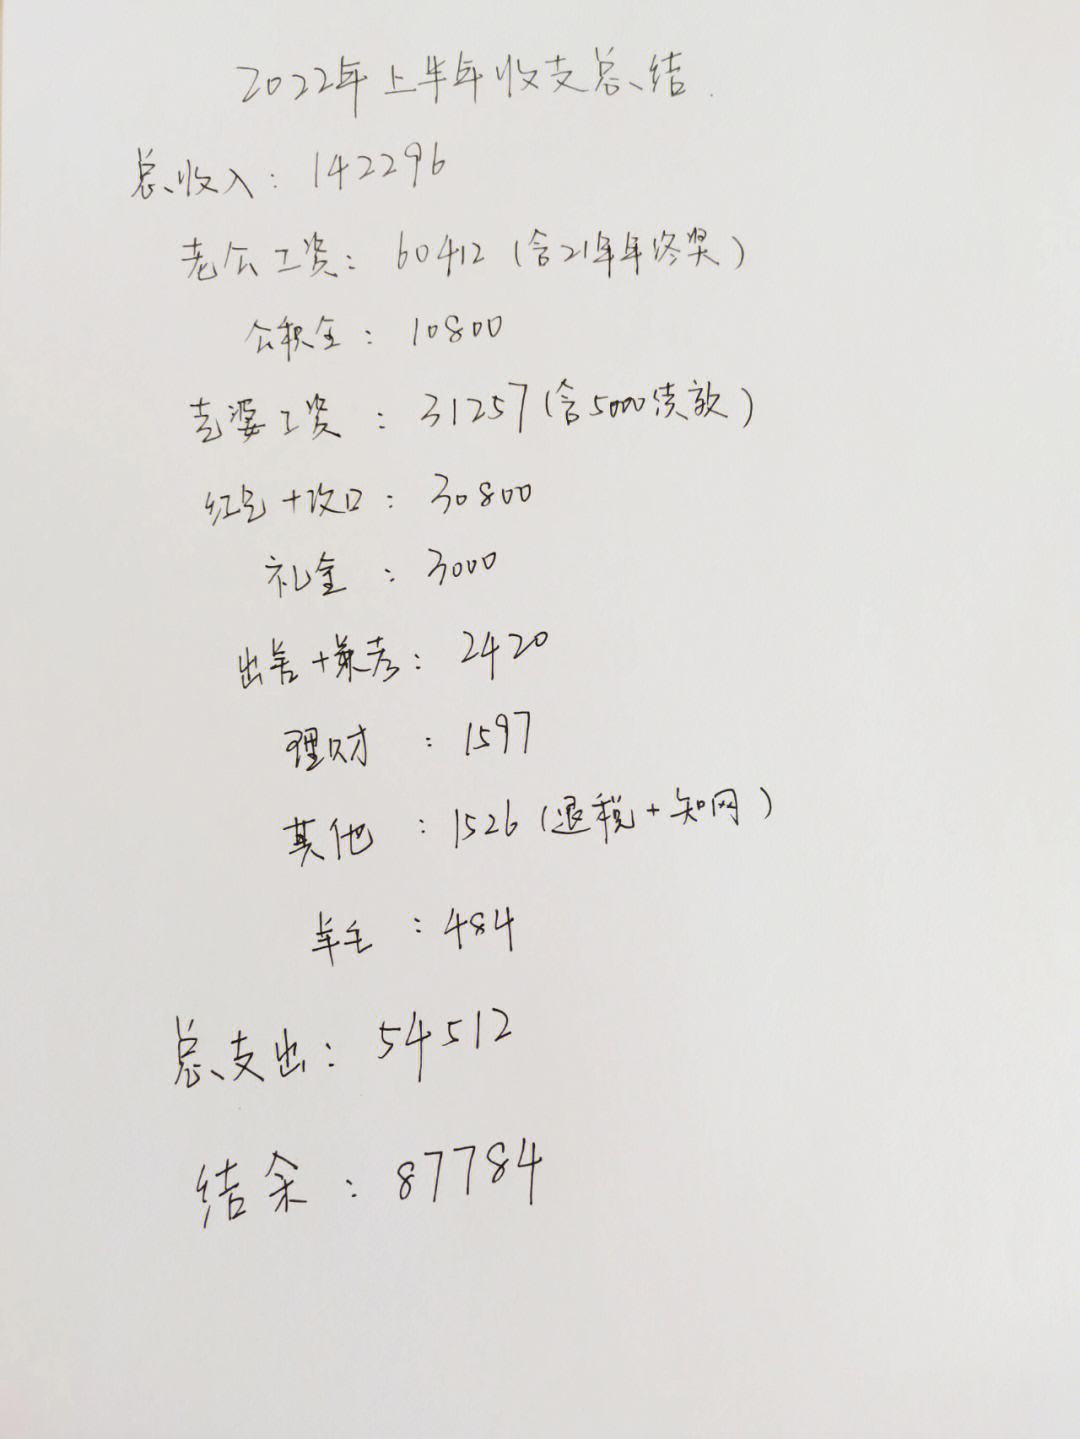 2022年上半年收支总结.
总收入: 142296
老公工资: 60412 (含21年年终奖)
公积金: 10800
老婆工资: 31257 (含5000绩效)
红包+改口: 30800
礼金: 3000
出差+兼: 2420
理财: 1597
其他: 1526 (退税+知网)
: 484
总支出: 54512
结余: 87784